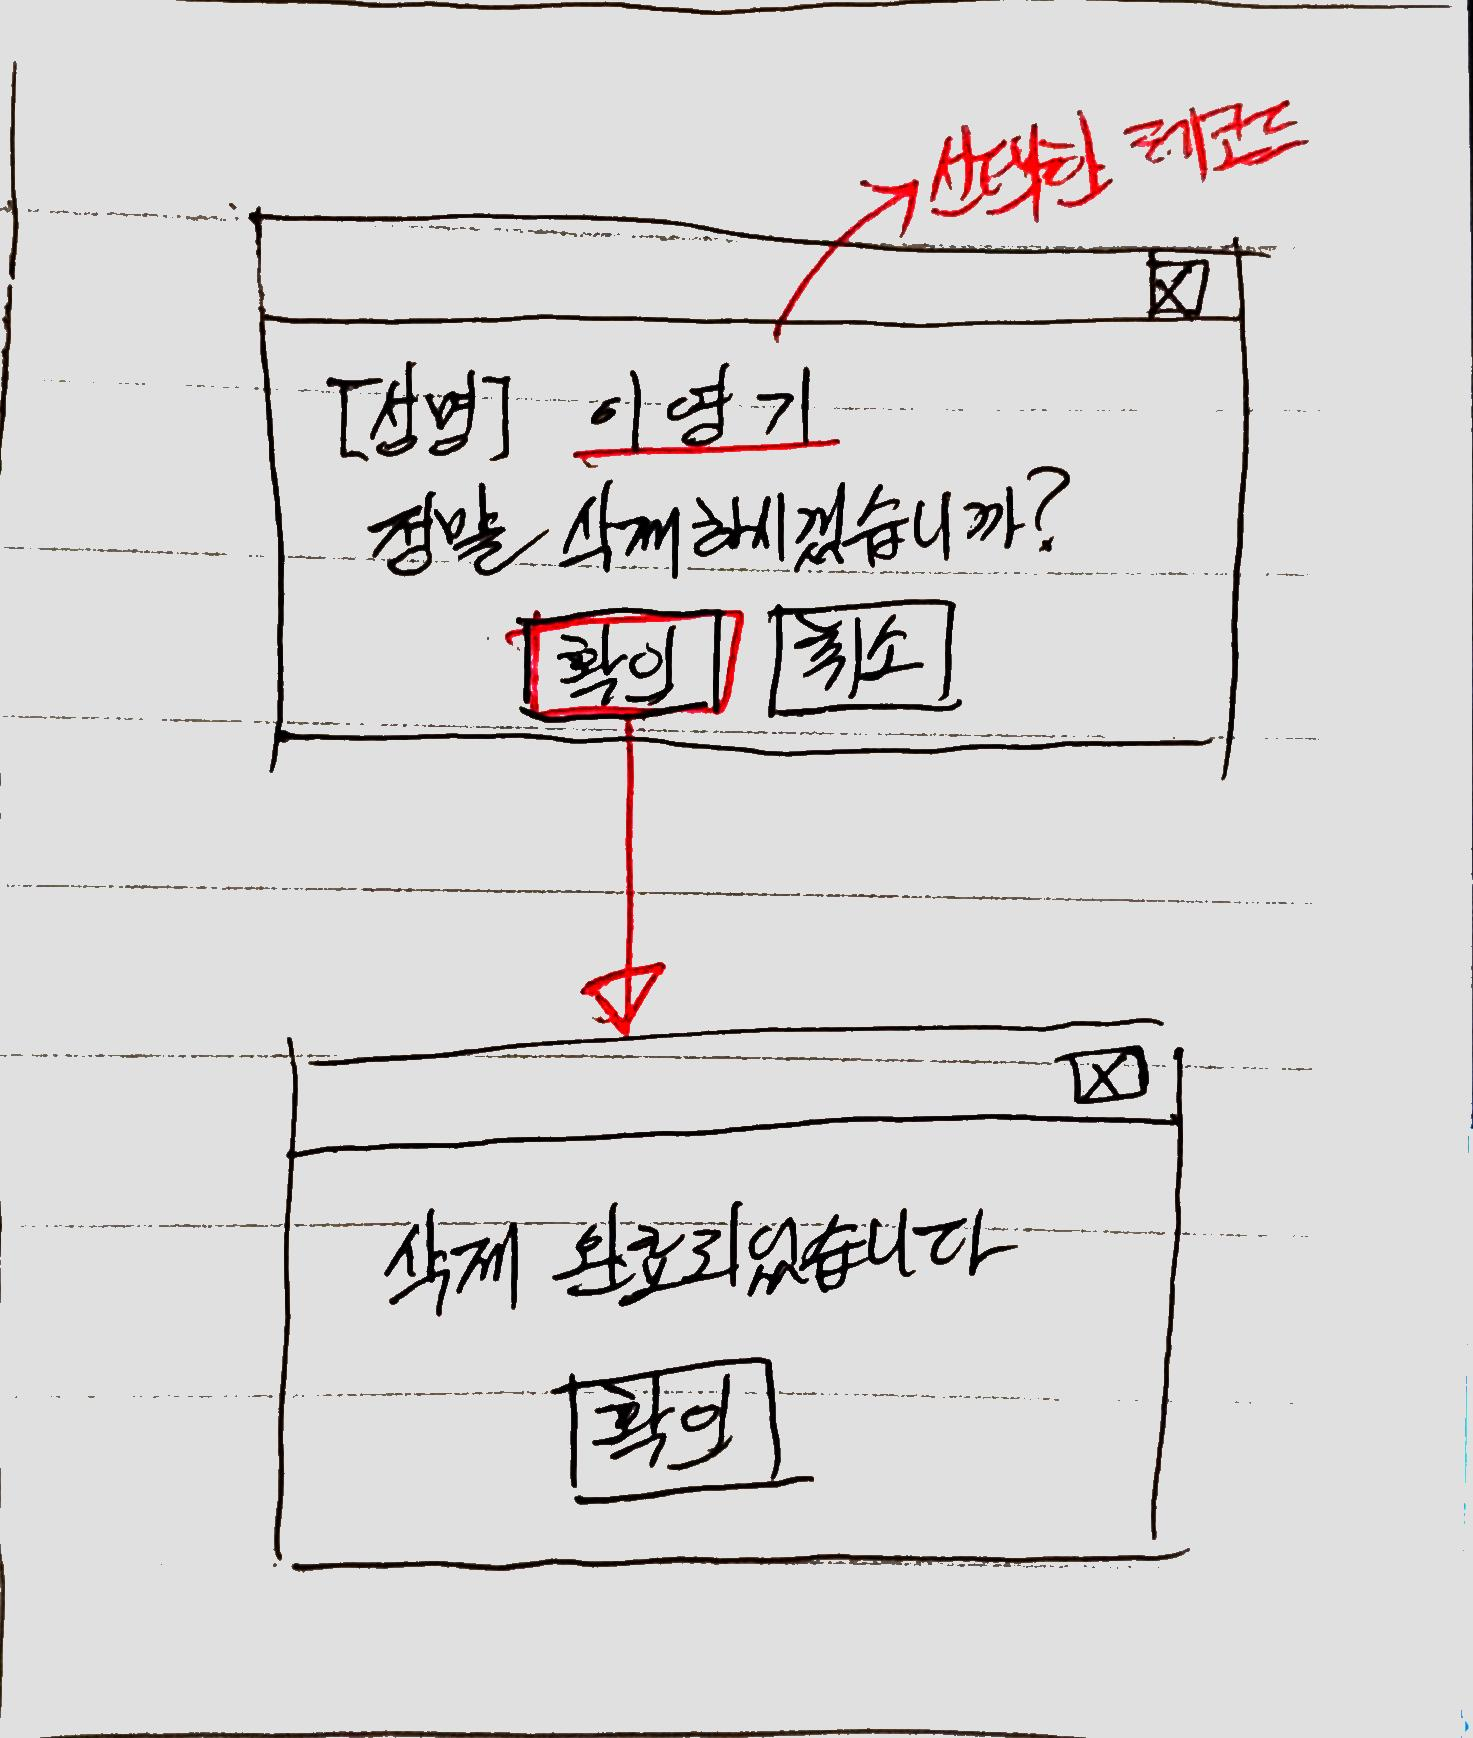 선택한 레코드
X
[성명] 이영기
정말 삭제하시겠습니까?
확인 취소
X
삭제 완료되었습니다
확인